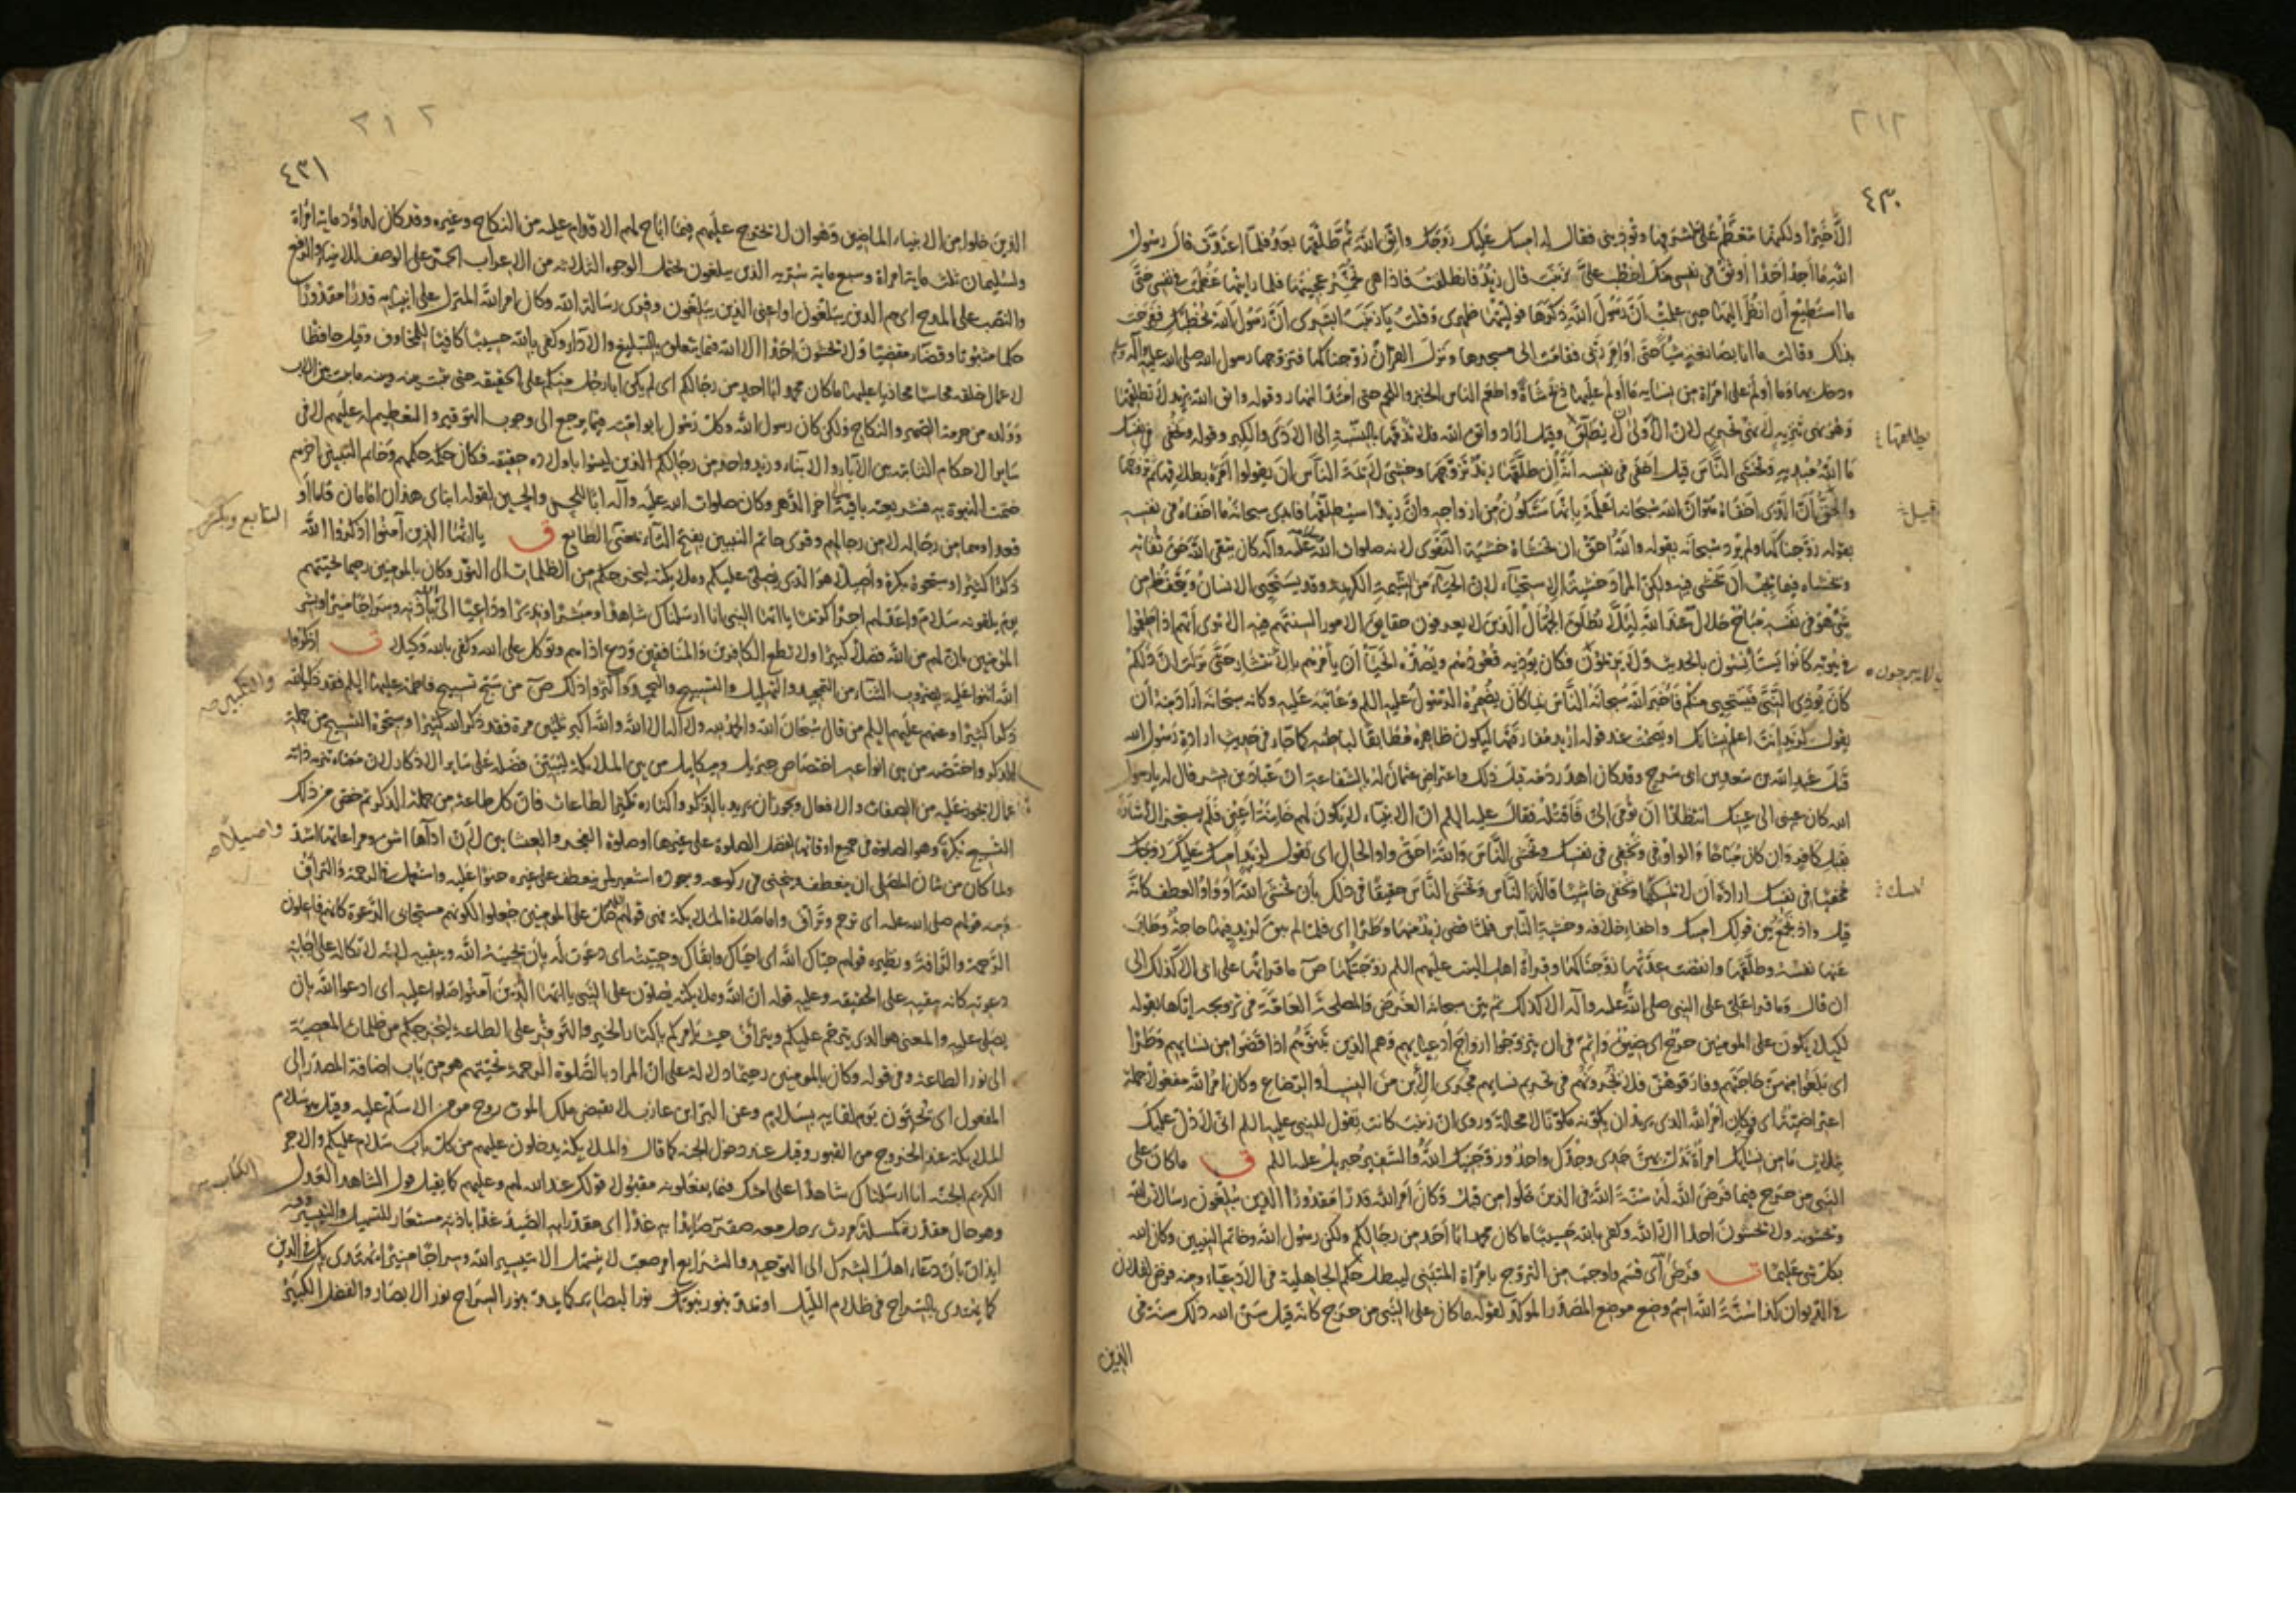 ٢١٢
٤٣٠
الا خيرا ولكنها تتعظم على لشرفها وتؤذيني فقال له امسك عليك زوجك واتق الله ثم طلقها بعد فلما اعتدت قال رسول
الله ما اجد احدا اوثق في نفسي منك اخطب علي زينب قال زيد فانطلقت فاذا هي تخمر عجينها فلما رايتها عظمت في نفسي حتى
ما استطيع ان انظر اليها حين علمت ان رسول الله ذكرها فوليتها ظهري وقلت يا زينب ابشري ان رسول الله يخطبك ففرحت
بذلك وقالت ما انا بصانعة شيئا حتى اوامر ربي فقامت الى مسجدها ونزل القرآن زوجناكها فتزوجها رسول الله صلى الله عليه وآله
ودخل بها وما اولم على امراة من نسايه ما اولم عليها ذبح شاة واطعم الناس الخبز واللحم حتى امتد النهار وقوله واتق الله يريد لا تطلقها
وهو نهي تنزيه لا نهي تحريم لان الاولى ان لا يطلق وقيل اراد واتق الله فلا تذمها بالنسبة الى الاذى والكبر وقوله وتخفي في نفسك
ما الله مبديه وتخشى الناس قيل اخفى في نفسه انه ان طلقها زيد تزوجها وخشي لائمة الناس ان يقولوا امره بطلاقها ثم تزوجها
والحق ان الذي اخفاه هو ان الله سبحانه اعلمه بانها ستكون من ازواجه وان زيدا سيطلقها فابدى سبحانه ما اخفاه في نفسه
بقوله زوجناكها ولم يرد سبحانه بقوله والله احق ان تخشاه خشية التقوى لانه صلوات الله عليه وآله كان يتقي الله حق تقاته
ويخشاه فيما يجب ان يخشى فيه ولكن المراد خشية الاستحياء لان الحياء من الشيمة الكريمة وقد يستحيي الانسان ويتحفظ من
شيء هو في نفسه مباح حلال عند الله لئلا يطلق الجهال الذين لا يعرفون حقايق الامور السنتهم فيه الا ترى انهم اذا طعموا
في بيوته كانوا يستأنسون بالحديث ولا يرتحلون فكان يؤذيه قعودهم ويصده الحياء ان يأمرهم بالانتشار حتى نزلت ان ذلكم
كان يؤذي النبي فيستحيي منكم فاخبر الله سبحانه الناس بما كان يضمره الرسول عليه السلام وعاتبه عليه وكانه سبحانه اراد منه ان
يقول لزيد انت اعلم بشانك او يصمت عند قوله اريد مفارقتها ليكون ظاهره مطابقا لباطنه كما جاء في حديث ارادة رسول الله
قتل عبد الله بن سعد بن ابي سرح وقد كان اهدر دمه قبل ذلك واعترض عثمان له بالشفاعة ان عباد بن بشر قال له يا رسول
الله كان عيني الى عينك انتظارا ان تومئ الي فاقتله فقال عليه السلام ان الانبياء لا يكون لهم خاينة اعين فلم يستجز الاشارة
بقتل كافر وان كان مباحا والواو في وتخفي في نفسك وتخشى الناس والله احق واو الحال اي تقول لزيد امسك عليك زوجك
مخفيا في نفسك ارادة ان لا تمسكها وتخفي خاشيا قالة الناس وتخشى الناس حقيقا في ذلك بان تخشى الله او واو العطف كانه
قيل واذ تجمع بين قولك امسك واخفاء خلافه وخشية الناس فلما قضى زيد منها وطرا اي فلما لم يبق لزيد فيها حاجة وطابت
عنها نفسه وطلقها وانقضت عدتها زوجناكها وقراءة اهل البيت عليهم السلم زوجتكها ص ما قراتها على ابي الا كذلك الى
ان قال وما قرا علي على النبي صلى الله عليه وآله الا كذلك ثم بين سبحانه الغرض والمصلحة العامة في تزويجه اياها بقوله
لكيلا يكون على المومنين حرج اي ضيق واثم في ان يتزوجوا ازواج ادعيايهم وهم الذين تبنوهم اذا قضوا من نسايهم وطرا
اي بلغوا منهن حاجتهم وفارقوهن فلا تجروهم في تحريم نسايهم مجرى الابن من النسب او الرضاع وكان امر الله مفعولا جملة
اعتراضية اي وكان امر الله الذي يريد ان يكونه مكونا لا محالة وروي ان زينب كانت تقول للنبي عليه السلم اني لادل عليك
بثلاث ما من نسايك امراة تدل بهن جدي وجدك واحد وزوجنيك الله والسفير جبريل عليه السلم ق ما كان على
النبي من حرج فيما فرض الله له سنة الله في الذين خلوا من قبل وكان امر الله قدرا مقدورا الذين يبلغون رسالات الله
ويخشونه ولا يخشون احدا الا الله وكفى بالله حسيبا ما كان محمد ابا احد من رجالكم ولكن رسول الله وخاتم النبيين وكان الله
بكل شي عليما ت فرض اي قسم واوجب من التزوج بامراة المتبنى ليبطل حكم الجاهلية في الادعياء ومنه فرض لفلان
في الديوان كذا سنة الله اسم وضع موضع المصدر الموكد لقوله ما كان على النبي من حرج كانه قيل سن الله ذلك سنة في
الذين
٢١٢
٤٣١
الذين خلوا من الانبياء الماضين وهو ان لا يحرج عليهم فيما اباح لهم الاقدام عليه من النكاح وغيره وقد كان لداود ماية امراة
ولسليمان ثلث ماية امراة وسبع ماية سرية الذين يبلغون يحتمل الوجوه الثلاثه من الاعراب الجر على الوصف للانبياء والرفع
والنصب على المدح اي هم الذين يبلغون او اعني الذين يبلغون وقرئ رسالة الله وكان امر الله المنزل على انبيايه قدرا مقدورا
حكما مبتوتا وقضاء مقضيا ولا تخشون احدا الا الله فيما يتعلق بالتبليغ والاداء وكفى بالله حسيبا كافيا للمخاوف وقيل حافظا
لاعمال خلقه محاسبا مجازيا عليها ما كان محمد ابا احد من رجالكم اي لم يكن ابا رجل منكم على الحقيقه حتى يثبت بينه وبينه ما يثبت بين الاب
وولده من حرمة الصهر والنكاح ولكن كان رسول الله وكل رسول ابو امته فيما يرجع الى وجوب التوقير والتعظيم له عليهم لا في
ساير الاحكام الثابتة بين الآباء والابناء وزيد واحد من رجالكم الذين ليسوا باولاده حقيقه فكان حكمه حكمهم وخاتم النبيين اخرهم
ختمت النبوة به فشريعته باقية الى اخر الدهر وكان صلوات الله عليه وآله ابا للحسن والحسين لقوله ابناي هذان امامان قاما او
قعدا وهما من رجاله لا من رجالهم وقرئ خاتم النبيين بفتح التاء بمعنى الطابع ق يا ايها الذين آمنوا اذكروا الله
ذكرا كثيرا وسبحوه بكرة واصيلا هو الذي يصلي عليكم وملايكته ليخرجكم من الظلمات الى النور وكان بالمومنين رحيما تحيتهم
يوم يلقونه سلام واعد لهم اجرا كريما يا ايها النبي انا ارسلناك شاهدا ومبشرا ونذيرا وداعيا الى الله باذنه وسراجا منيرا وبشر
المومنين بان لهم من الله فضلا كبيرا ولا تطع الكافرين والمنافقين ودع اذاهم وتوكل على الله وكفى بالله وكيلا ت اذكروا
الله اثنوا عليه بضروب الثناء من التمجيد والتهليل والتسبيح والتحميد واكثروا ذلك ص من سبح تسبيح فاطمة عليها السلم فقد ذكر الله
ذكرا كثيرا وعنهم عليهم السلم من قال سبحان الله والحمد لله ولا اله الا الله والله اكبر ثلثين مرة فقد ذكر الله كثيرا وسبحوه التسبيح من جملة
الذكر واختصه من بين انواعه اختصاص جبريل وميكايل من بين الملايكة ليتبين فضله على ساير الاذكار لان معناه تنزيه ذاته
عما لا يجوز عليه من الصفات والافعال ويجوز ان يريد بالذكر واكثاره تكثير الطاعات فان كل طاعة من جملة الذكر ثم خص من ذلك
التسبيح بكرة وهو الصلوة في جميع اوقاتها لفضل الصلوة على غيرها او صلوة الفجر والعشاءين لان اداءها اشق ومراعاتها اشد
ولما كان من شان المصلي ان ينعطف وينحني في ركوعه وسجوده استعير لمن ينعطف على غيره حنوا عليه واستعمل في الرحمة والتراف
ومنه قولهم صلى الله عليه اي ترحم وتراف واما صلاة الملايكة فهي قولهم اللهم صل على المومنين جعلوا لكونهم مستجابي الدعوة كانهم فاعلون
الرحمة والرافة ونظيره قولهم حياك الله اي احياك وابقاك وحييته اي دعوت له بان يحييه الله ويبقيه لانه لاتكاله على اجابة
دعوته كانه يبقيه على الحقيقه وعليه قوله ان الله وملايكته يصلون على النبي يا ايها الذين آمنوا صلوا عليه اي ادعوا الله بان
يصلي عليه والمعنى هو الذي يترحم عليكم ويتراف حيث يامركم باكثار الخير والتوفر على الطاعة ليخرجكم من ظلمات المعصية
الى نور الطاعة وفي قوله وكان بالمومنين رحيما دلالة على ان المراد بالصلوة الرحمة تحيتهم هو من باب اضافة المصدر الى
المفعول اي يحيون يوم لقايه بسلام وعن البراء بن عازب لا يقبض ملك الموت روح مومن الا سلم عليه وقيل هو سلام
الملايكة عند الخروج من القبور وقيل عند دخول الجنة كما قال والملايكة يدخلون عليهم من كل باب سلام عليكم والاجر
الكريم الجنة انا ارسلناك شاهدا على امتك فيما يفعلونه مقبولا قولك عند الله لهم وعليهم كما يقبل قول الشاهد العدل
وهو حال مقدرة كمسئلة مررت برجل معه صقر صايدا به غدا اي مقدرا به الصيد غدا باذنه مستعار للتسهيل والتيسير
ايذان بان دعاء اهل الشرك الى التوحيد والشرايع امر صعب لا يتسهل الا بتيسير الله وسراجا منيرا يهتدى بك في الدين
كما يهتدى بالسراج في ظلام الليل او يمد بنور نبوتك نور البصاير كما يمد بنور السراج نور الابصار والفضل الكبير